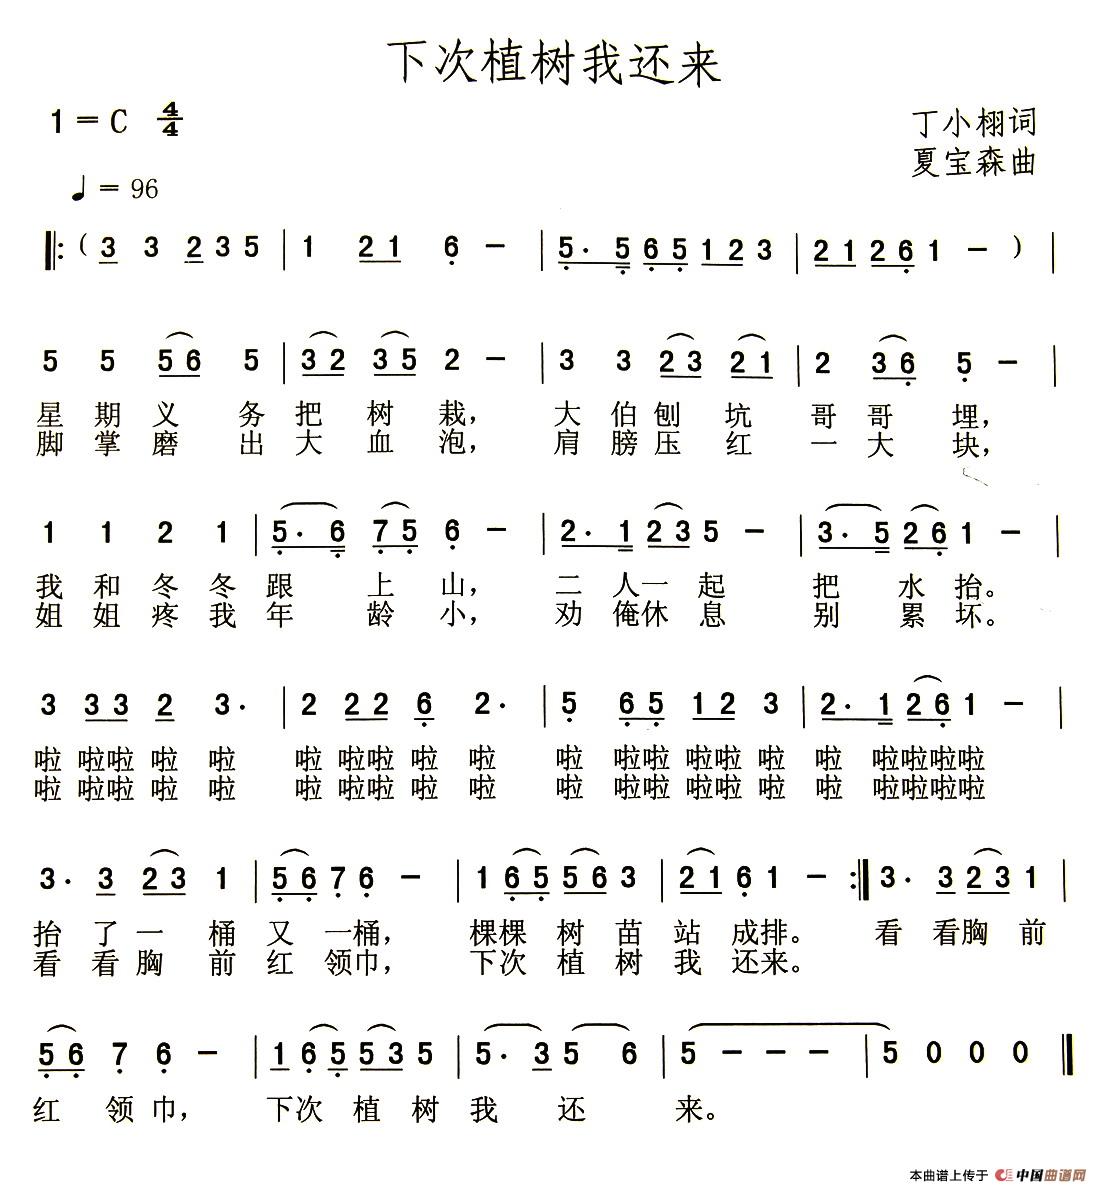 下次植树我还来
1=C 4/4
丁小栩词
夏宝森曲
♩=96
‖:( 3 3 2 3 5 | 1 2 1 6 - | 5. 5 6 5 1 2 3 | 2 1 2 6 1 - ) |
5 5 5 6 5 | 3 2 3 5 2 - | 3 3 2 3 2 1 | 2 3 6 5 - |
星期义务把树栽，大伯刨坑哥哥埋，
脚掌磨出大血泡，肩膀压红一大块，
1 1 2 1 | 5. 6 7 5 6 - | 2. 1 2 3 5 - | 3. 5 2 6 1 - |
我和冬冬跟上山，二人一起把水抬。
姐姐疼我年龄小，劝俺休息别累坏。
3 3 3 2 3. | 2 2 2 6 2. | 5 6 5 1 2 3 | 2. 1 2 6 1 - |
啦 啦啦 啦 啦 啦 啦啦 啦 啦 啦 啦啦 啦啦 啦 啦 啦啦啦啦
啦 啦啦 啦 啦 啦 啦啦 啦 啦 啦 啦啦 啦啦 啦 啦 啦啦啦啦
3. 3 2 3 1 | 5 6 7 6 - | 1 6 5 5 6 3 | 2 1 6 1 - :‖ 3. 3 2 3 1 |
抬了一桶又一桶，棵棵树苗站成排。看看胸前
看看胸前红领巾，下次植树我还来。
5 6 7 6 - | 1 6 5 5 3 5 | 5. 3 5 6 | 5 - - - | 5 0 0 0 ‖
红领巾，下次植树我还来。
本曲谱上传于 中国曲谱网